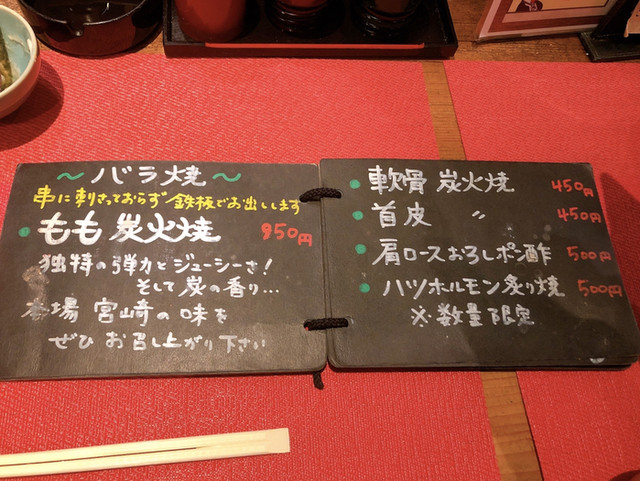 ～バラ焼～
串に刺さっておらず鉄板でお出しします
もも炭火焼 950円
独特の弾力とジューシーさ!
そして炭の香り...
本場 宮崎の味を
ぜひ お召し上がり下さい
軟骨 炭火焼 450円
首皮 〃 450円
肩ロースおろしポン酢 500円
ハツホルモン炙り焼 500円
※数量限定